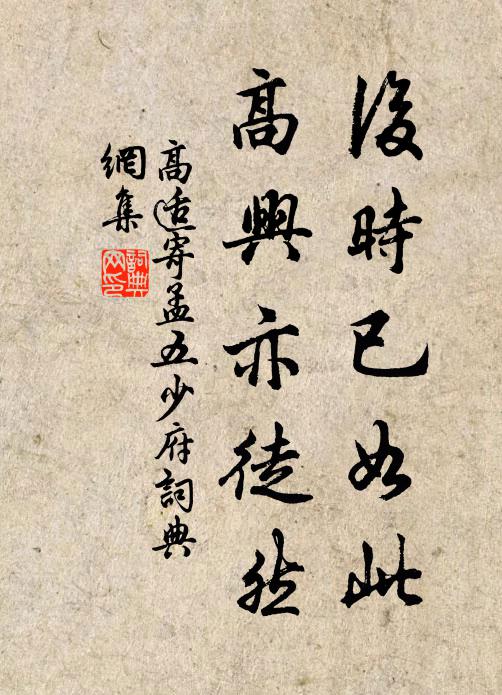 後時已如此
高興亦徒然
高適寄孟五少府詞典
網集
詞典
网印